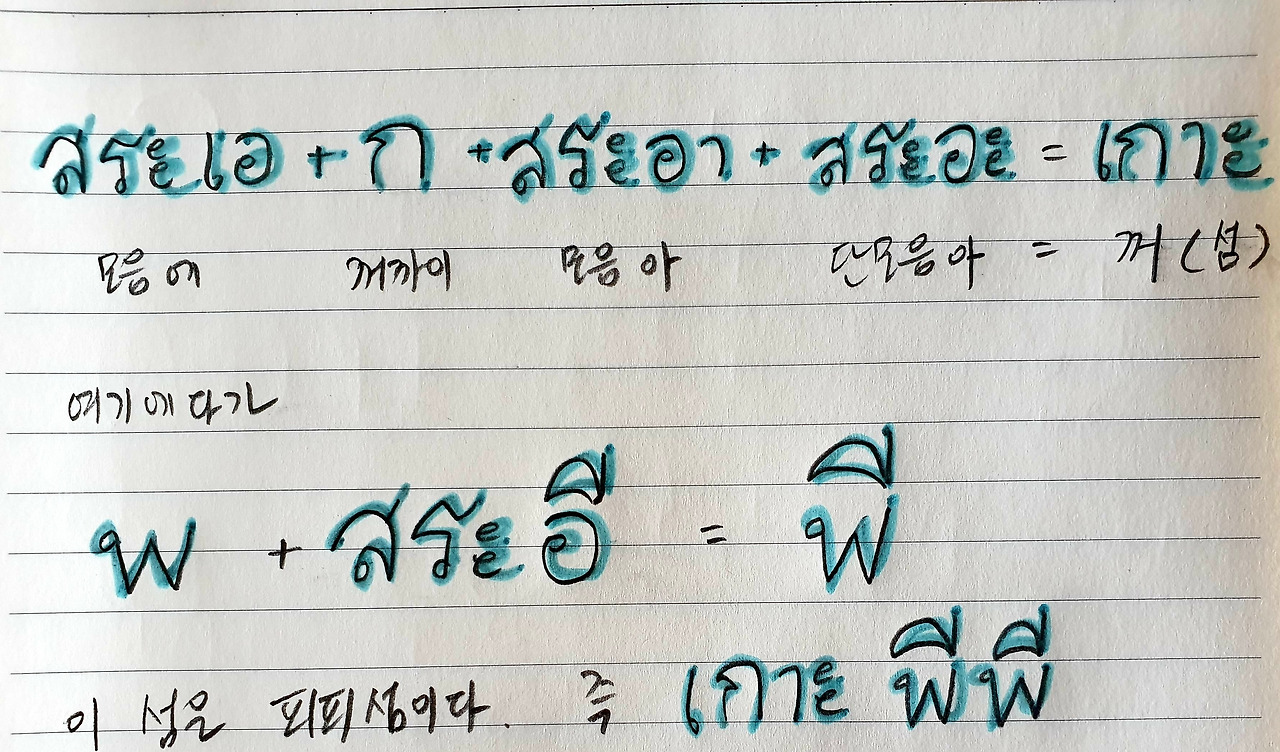 สระเอ + ก + สระอา + สระอะ = เกาะ
모음 에 꺼까이 모음 아 단모음 아 = 꺼 (섬)
여기에다가
พ + สระอี = พี
이 섬은 피피섬이다. 즉 เกาะ พีพี